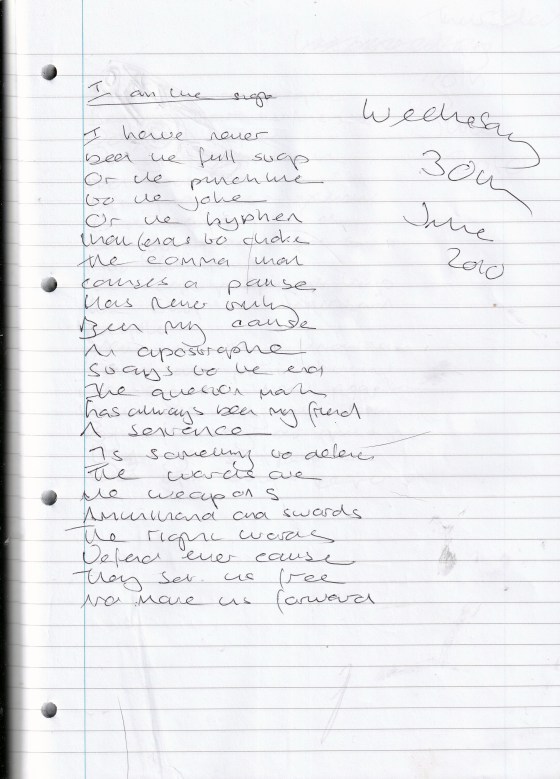 I am the sign
I have never
been the full stop
Or the punchline
to the joke
Or the hyphen
that tends to choke
The comma that
causes a pause
Has never truly
Been my cause
An apostrophe
strays to the end
The question mark
has always been my friend
A sentence
Is something to defend
The words are
the weapons
Ammunition and swords
The right words
Defend ever cause
They set us free
And move us forward
Wednesday
30th
June
2010